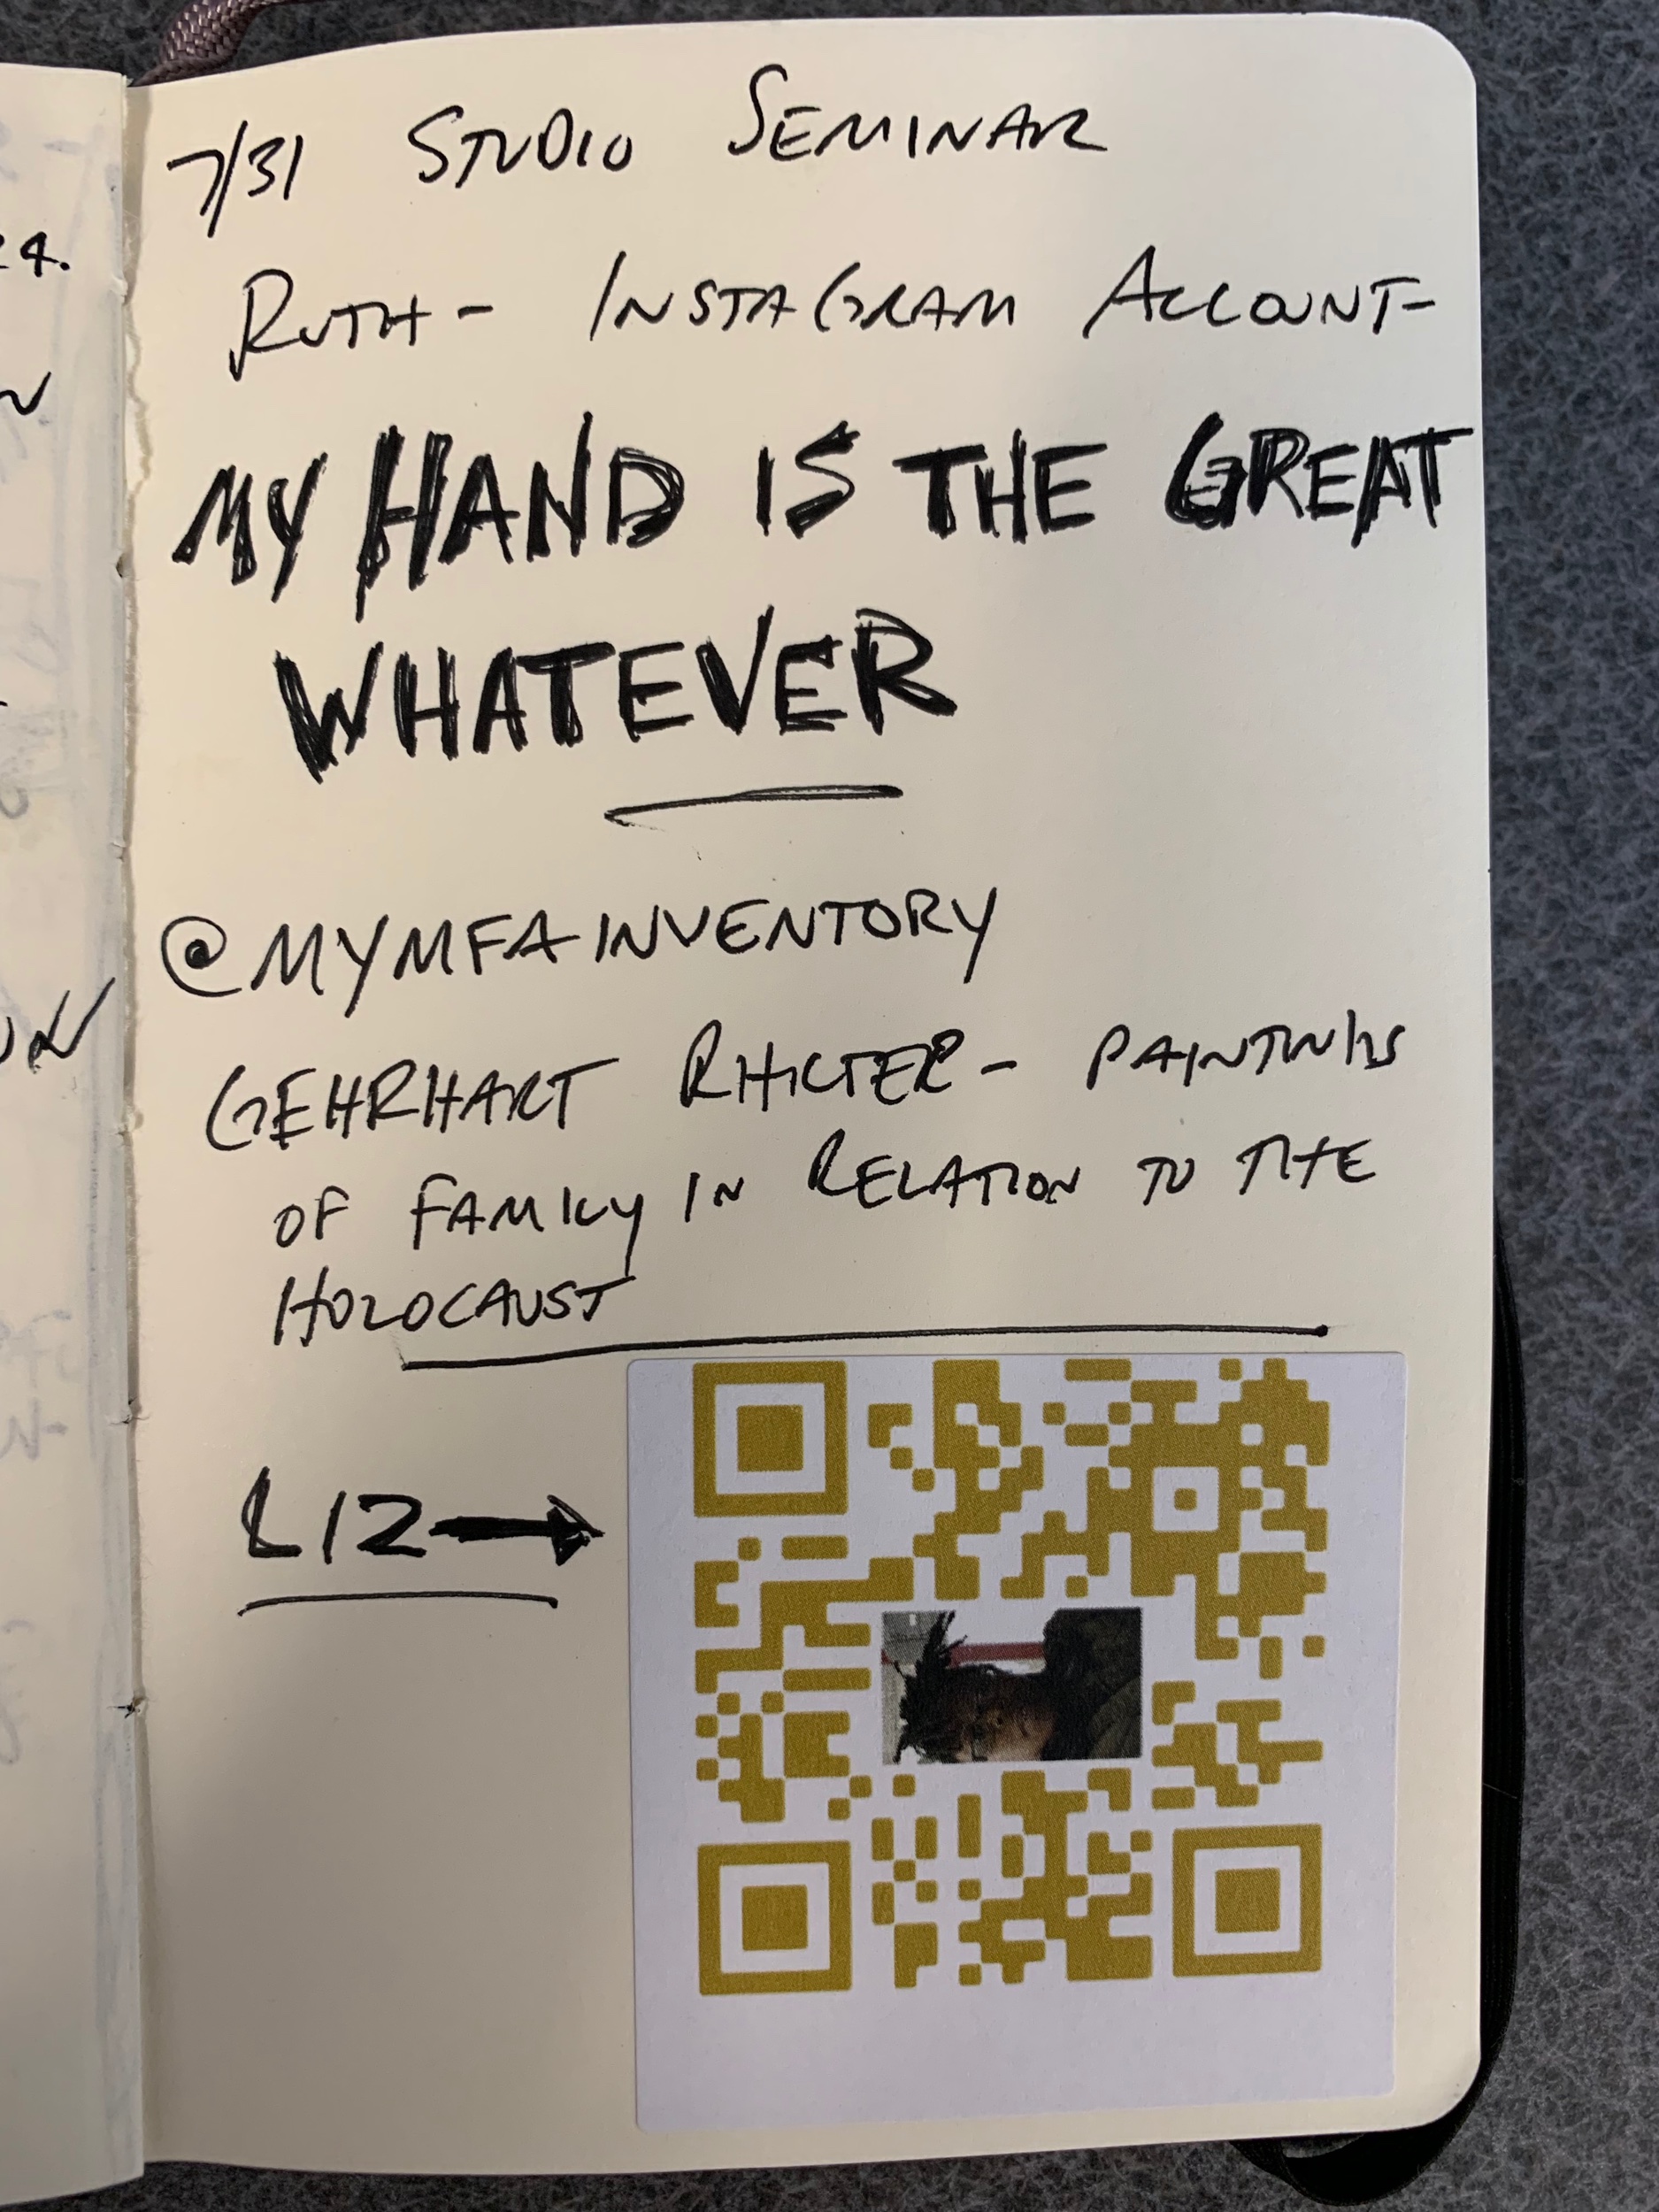 7/31 STUDIO SEMINAR
RUTH - INSTAGRAM ACCOUNT -
MY HAND IS THE GREAT
WHATEVER
@MYMFAINVENTORY
GEHRHART RHICTER - PAINTINGS
OF FAMILY IN RELATION TO THE
HOLOCAUST
LIZ →